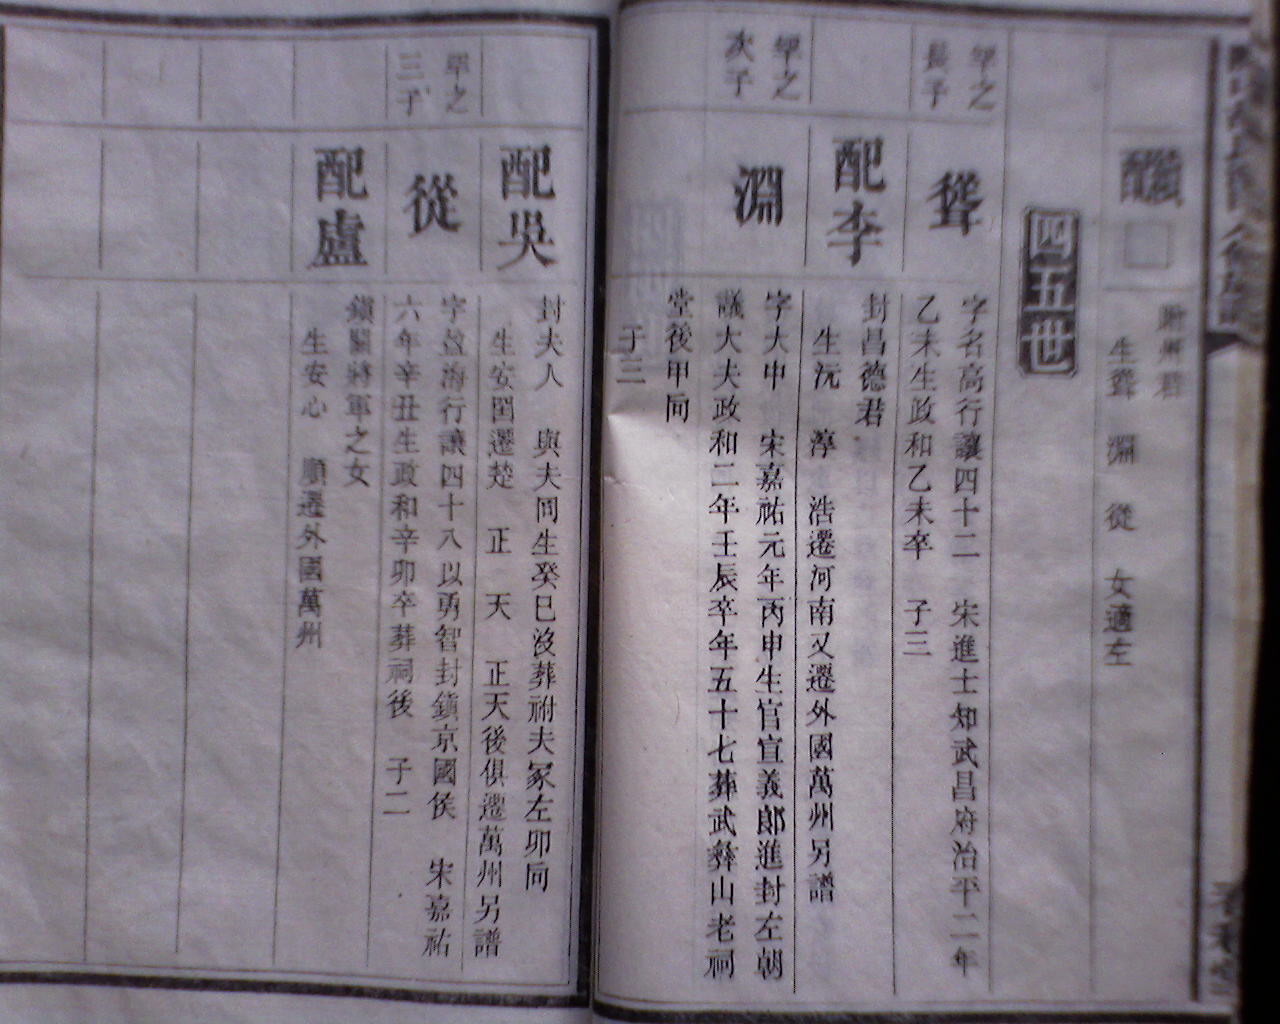 贈州群
生聳 淵 從 女適左
四五世
罕之
長子
聳
字名高行讓四十二 宋進士知武昌府治平二年
乙未生政和乙未卒 子三
配李
封昌德君
生沅 淳 浩遷河南又遷外國萬州另譜
罕之
次子
淵
字大中 宋嘉祐元年丙申生官宣義郎進封左朝
議大夫政和二年壬辰卒年五十七葬武彝山老祠
堂後甲向
子三
配吳
封夫人 與夫同生癸巳沒葬祔夫冢左卯向
生安國遷楚 正 天 正天後俱遷萬州另譜
罕之
三子
從
字益海行讓四十八以勇智封鎮京國侯 宋嘉祐
六年辛丑生政和辛卯卒葬祠後 子二
配盧
鎮關將軍之女
生安心 順遷外國萬州